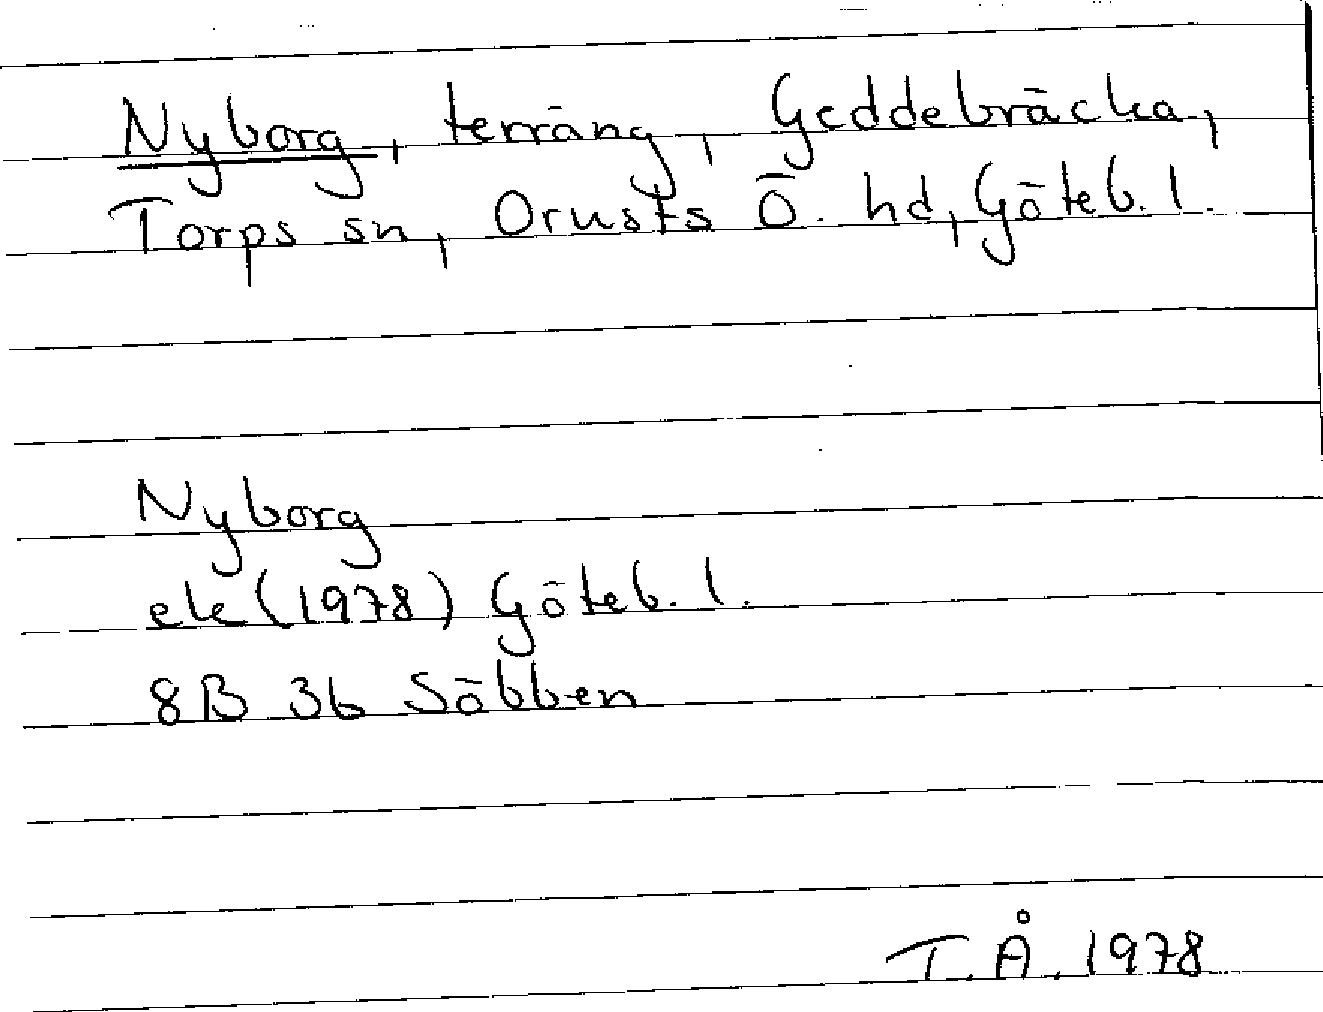 Nyborg, terräng, Geddebräcka,
Torps sn, Orusts Ö. hd, Göteb. l.
Nyborg
ek (1978) Göteb. l.
8B 3b Söbben
T.Å. 1978